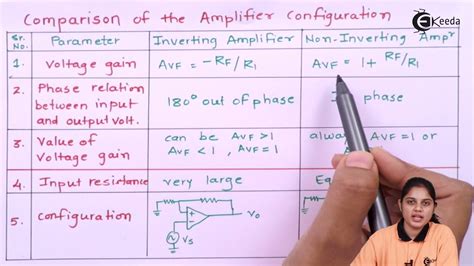 Comparison of the Amplifier Configuration
Ekeeda
Sr. No. Parameter Inverting Amplifier Non-Inverting Ampr
1. Voltage gain AVF = -RF/R1 AVF = 1+ RF/R1
2. Phase relation between input and output volt. 180° out of phase phase
3. Value of Voltage gain can be AVF >1 AVF <1, AVF=1 AVF =1 or
4. Input resistance very large
5. Configuration Vo
Vs